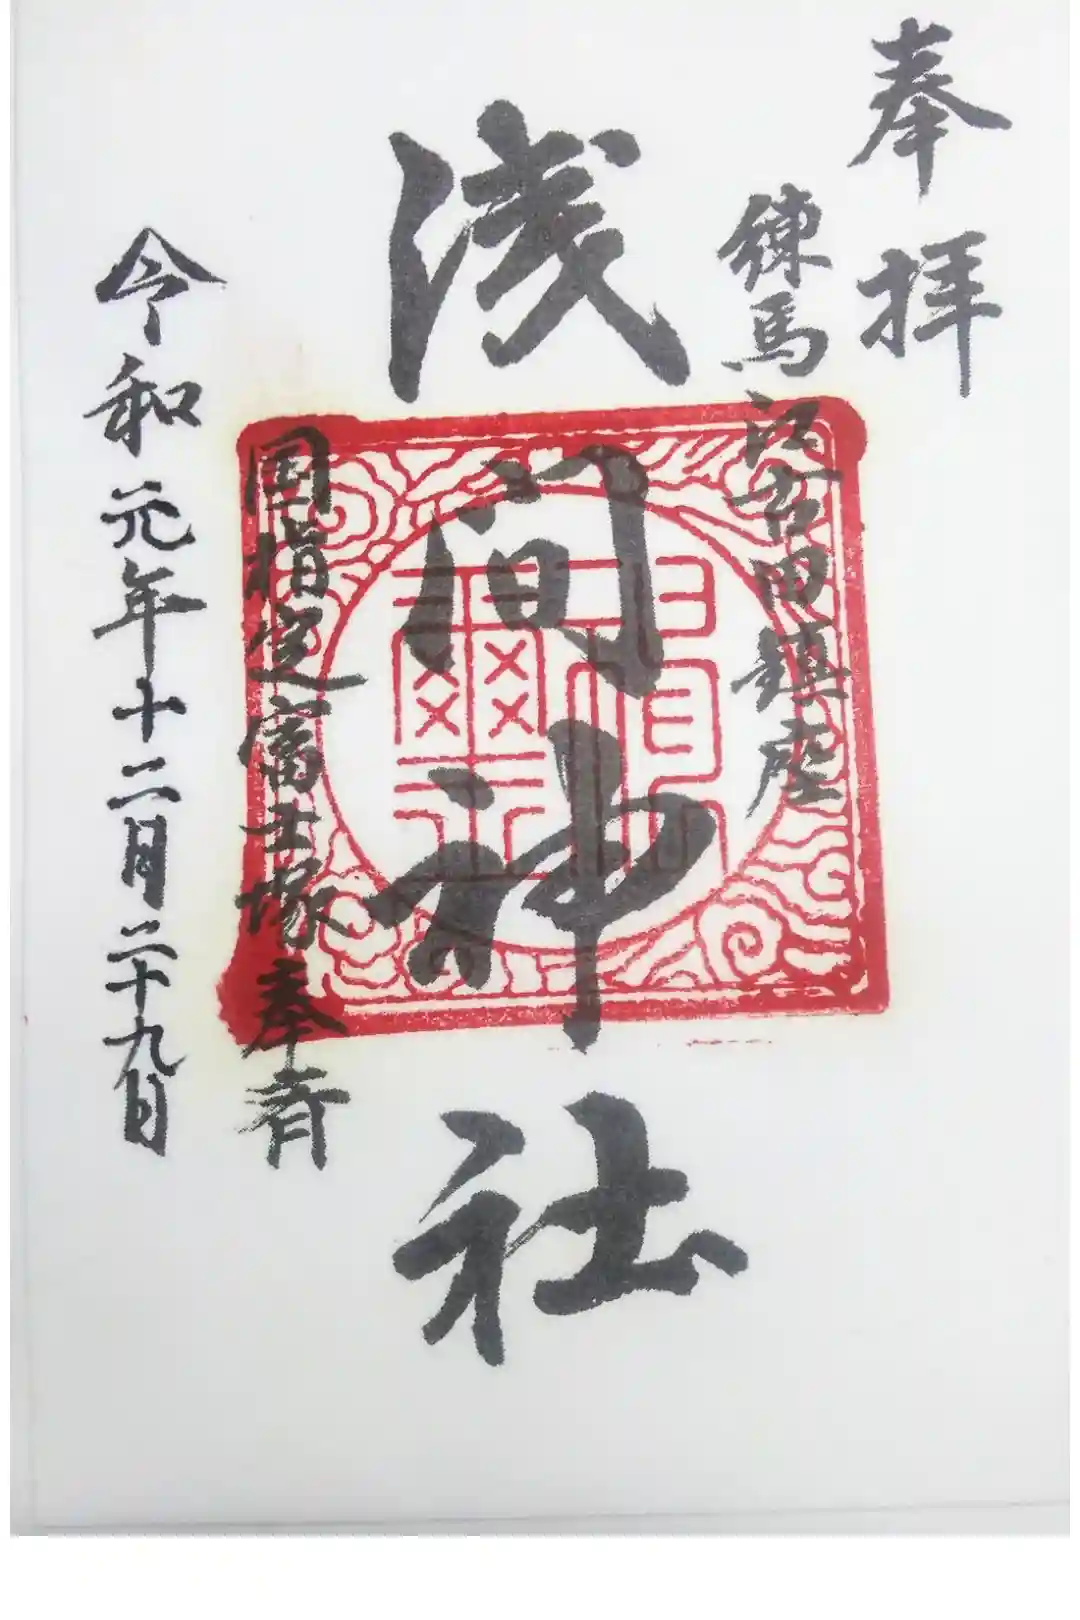 奉拝
練馬江古田鎮座
浅间神社
国指定富士塚奉斎
令和元年十二月二十九日